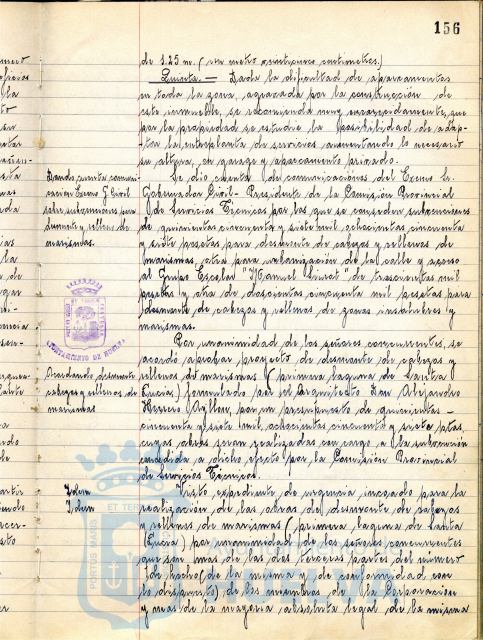 156
de 1.25 m. (un metro veinticinco centímetros.)
Quinta.— Dada la dificultad de aparcamientos
en toda la zona, agravada por la construcción de
este inmueble, se recomienda muy encarecidamente, que
por la propiedad se estudie la posibilidad de adap-
tar la entreplanta de servicios aumentando lo necesario
su altura, en garage y aparcamiento privado.
Dando cuenta comuni-
cación Excmo Sr. Civil
sobre subvenciones para
desmonte y relleno de
marismas.
Se dio cuenta de comunicaciones del Excmo Sr.
Gobernador Civil-Presidente de la Comisión Provincial
de Servicios Técnicos por las que se conceden subvenciones
de quinientas cincuenta y siete mil ochocientas cincuenta
y siete pesetas para desmonte de cabezos y rellenos de
marismas, otra para urbanización de la calle y acceso
al Grupo Escolar "Manuel Siurot" de trescientas mil
pesetas y otra de doscientas cincuenta mil pesetas para
desmonte de cabezos y rellenos de zonas insalubres y
marismas.
AYUNTAMIENTO DE HUELVA
Acordando desmonte
cabezos y rellenos de
marismas
Por unanimidad de los señores concurrentes, se
acordó aprobar proyecto de desmonte de cabezos y
rellenos de marismas (primera laguna de Santa
Lucía) formulado por el Arquitecto Don Alejandro
Herrero Ayllón, por un presupuesto de quinientas-
cincuenta y siete mil, ochocientas cincuenta y siete ptas,
cuyas obras serán realizadas con cargo a la subvención
concedida a dicho efecto por la Comisión Provincial
de Servicios Técnicos.
Idem
Idem
Visto expediente de urgencia incoado para la
realización de las obras del desmonte de cabezos
y rellenos de marismas (primera laguna de Santa
Lucía) por unanimidad de los señores concurrentes
que son mas de las dos terceras partes del número
de hecho de la misma y de conformidad con
lo dispuesto) de los miembros de la Corporación
y mas de la mayoria absoluta legal de la misma
PORTUS MARIS ET TERRAE
Ayuntamiento de